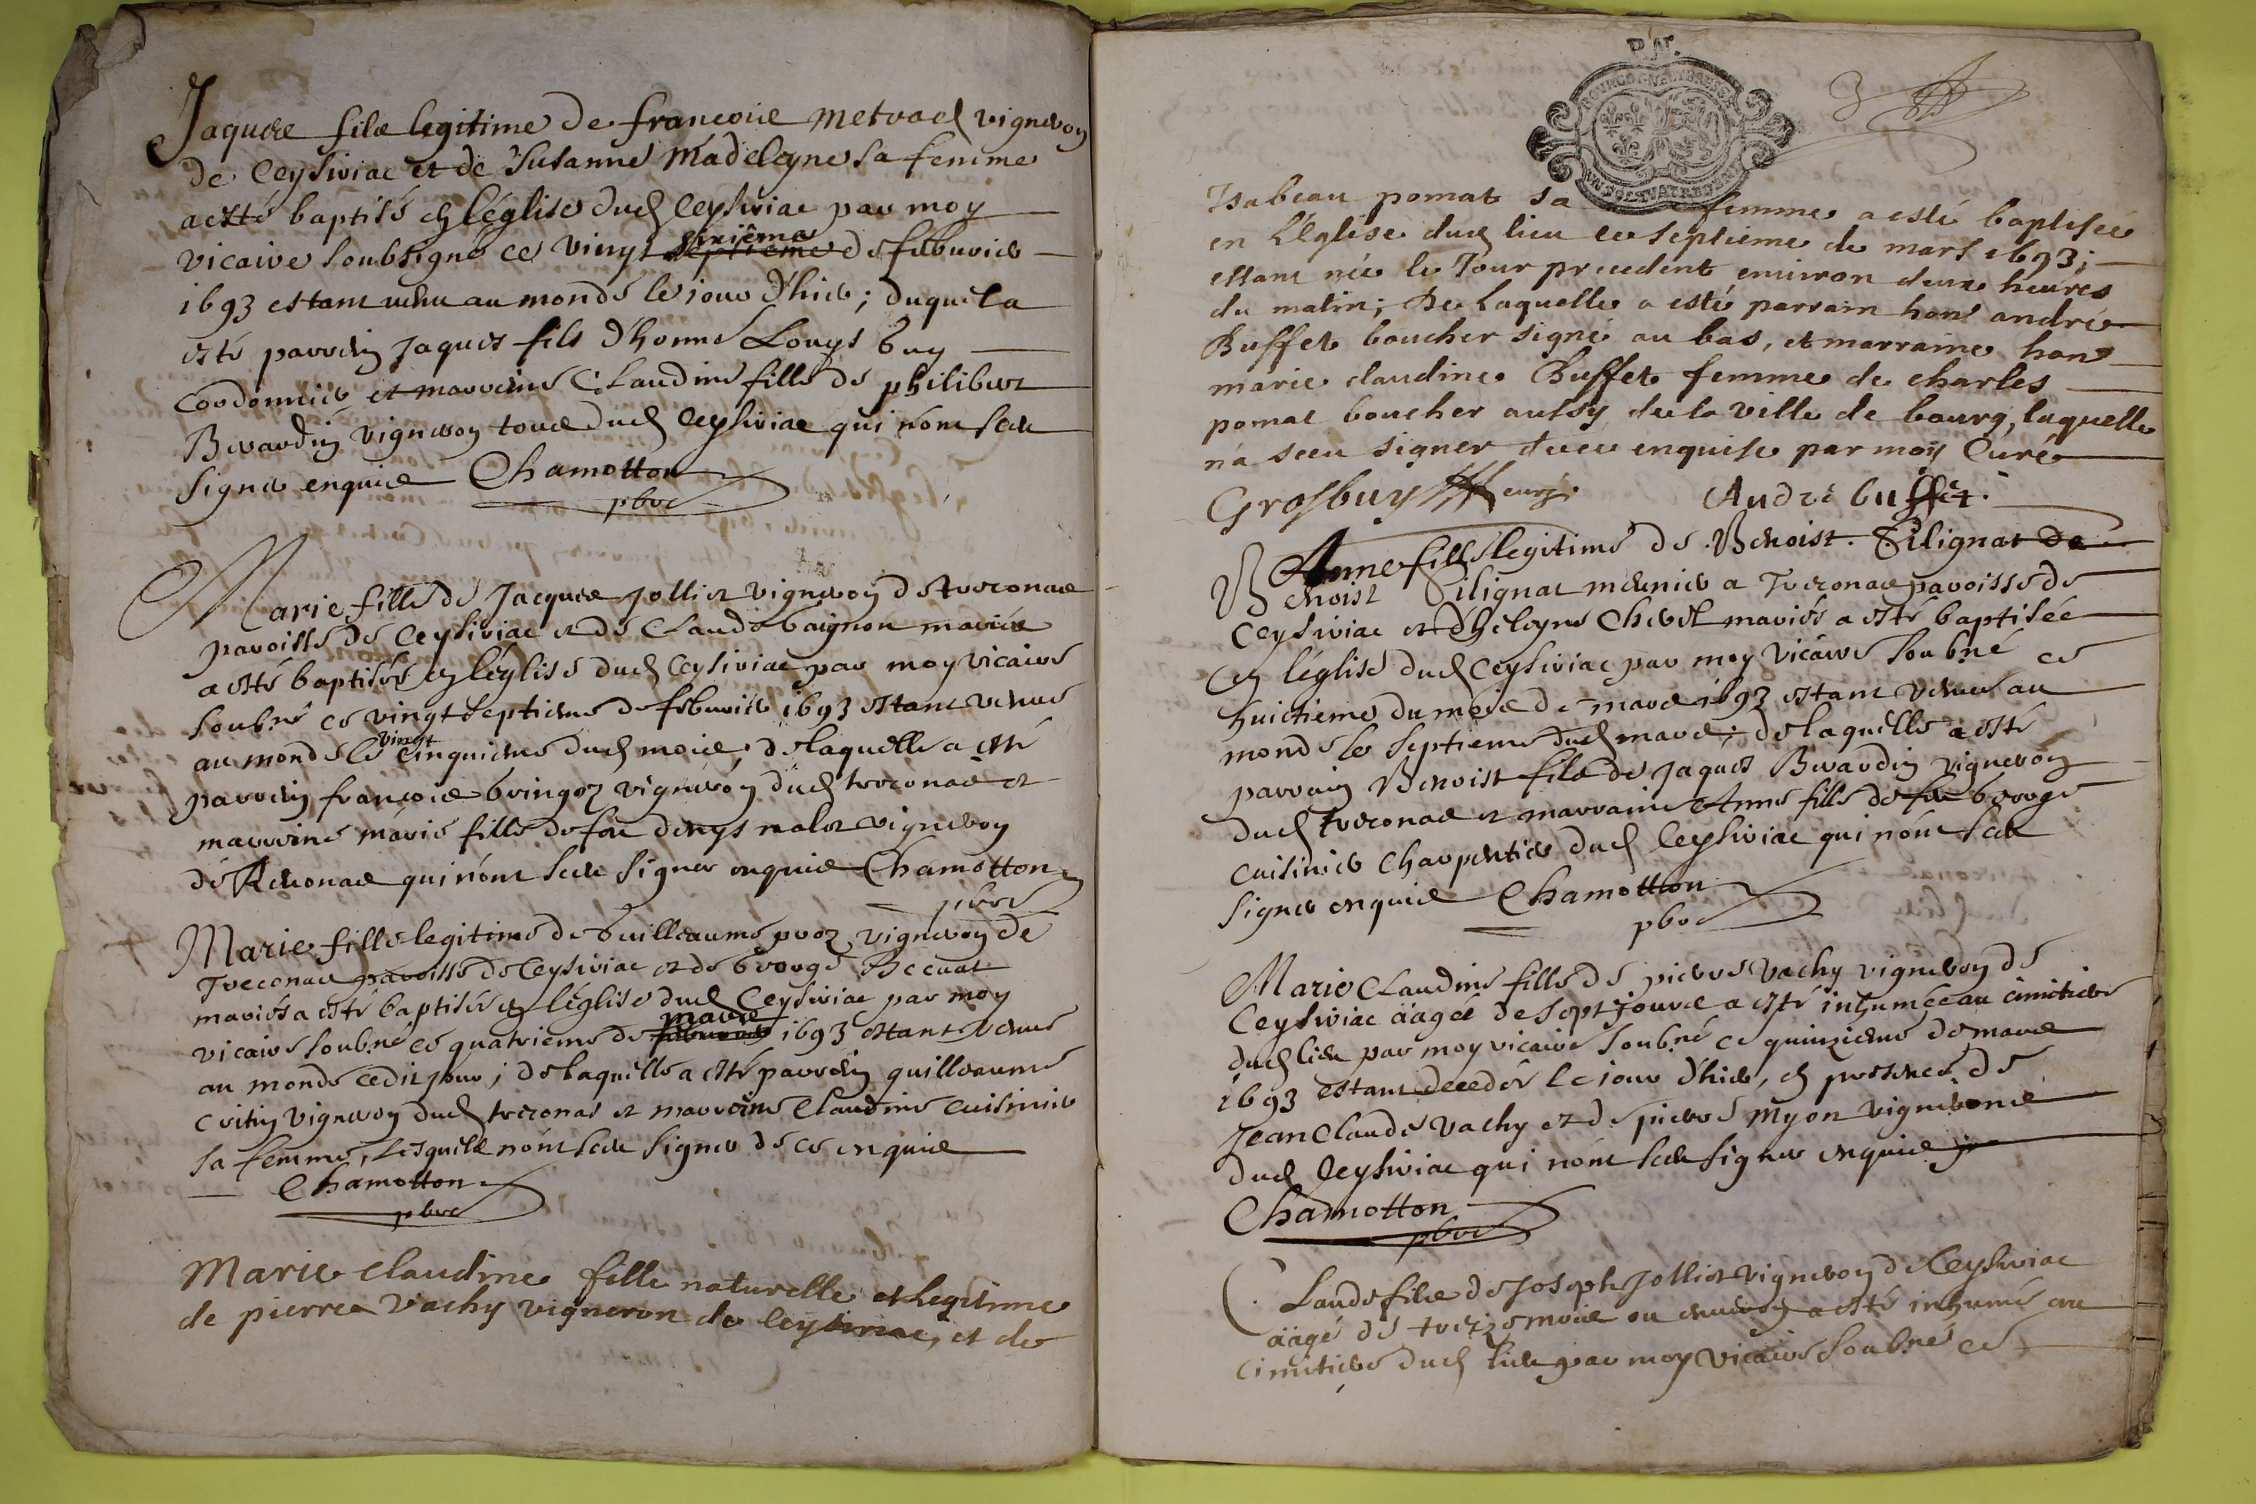 Jaques fils legitime de françois metrad vigneron
de Ceysiriac et de Susanne Madeleyne sa femme
a esté baptisé en léglise dud Ceysiriac par moy
vicaire soubsigné ce vingt septieme sixième de feburier
1693 estant venu au monde le iour d'hier; duquel a
esté parrein Jaques fils d'honne Louys buy
Cordonnier et marreine Claudine fille de philibert
Berardin vigneron tous dud Ceysiriac qui n'ont sceu
signer enquis Chamotton
pbre
Marie fille de Jacques Jolliet vigneron de treconas
paroisse de Ceysiriac et de Claude baignon mariés
a esté baptisée en léglise dud Ceysiriac par moy vicaire
soubné ce vingt septieme de feburier 1693 estant venue
au monde le vingt cinquieme dud mois; de laquelle a esté
parrein françois bringoz vigneron dud treconas et
marreine marie fille de feu denys malet vigneron
de Reuonas qui n'ont sceu signer enquis Chamotton
pbre
Marie fille legitime de Guilleaume proz vigneron de
Treconas paroisse de Ceysiriac et de George Becuat
mariés a esté baptisée en léglise dud Ceysiriac par moy
vicaire soubné ce quatrieme de feburier mars 1693 estant venue
au monde cedit jour; de laquelle a esté parrein guilleaume
Critin vigneron dud treconas et marreine Claudine Cuisinier
sa femme, lesquels n'ont sceu signer de ce enquis
Chamotton
pbre
Marie claudine fille naturelle et legitime
de pierre Vachy vigneron de Ceysiriac, et de
3
Isabeau pomat sa femme a esté baptisée
en l'Eglise dud lieu ce septieme de mars 1693;
estant née le Jour precedent environ deux heures
du matin; De laquelle a esté parrain hone andré
Buffet boucher signé au bas, et marraine hone
marie claudine Buffet femme de charles
pomat boucher aussy de la ville de bourg, laquelle
n'a sceu signer de ce enquise par moy Curé
Grosbuy curé. André buffet.
Anne fille legitime de Benoist Pilignat de
Benoist Pilignat meunier a Treconas paroisse de
Ceysiriac et d'heleyne Chevet mariés a esté baptisée
en léglise dud Ceysiriac par moy Vicaire soubné ce
huictieme du mois de mars 1693 estant venue au
monde le septieme dud mars; de laquelle a esté
parrain Benoist fils de Jaques Berardin vigneron
dud treconas et marraine Anne fille de feu George
Cuisinier Charpentier dud Ceysiriac qui n'ont sceu
signer enquis Chamotton
pbre
Marie Claudine fille de pierre Vachy vigneron de
Ceysiriac aâgée de sept jours a esté inhumée au cimitiere
dud lieu par moy vicaire soubné ce quinzieme de mars
1693 estant decedée le iour d'hier, en presence de
Jean Claude Vachy et de pierre Myon vignerons
dud Ceysiriac qui n'ont sceu signer enquis
Chamotton
pbre
Claude fils de Joseph Jolliet vigneron de Ceysiriac
aâgé de treize mois ou environ a esté inhumé au
cimitiere dud lieu par moy vicaire soubné ce